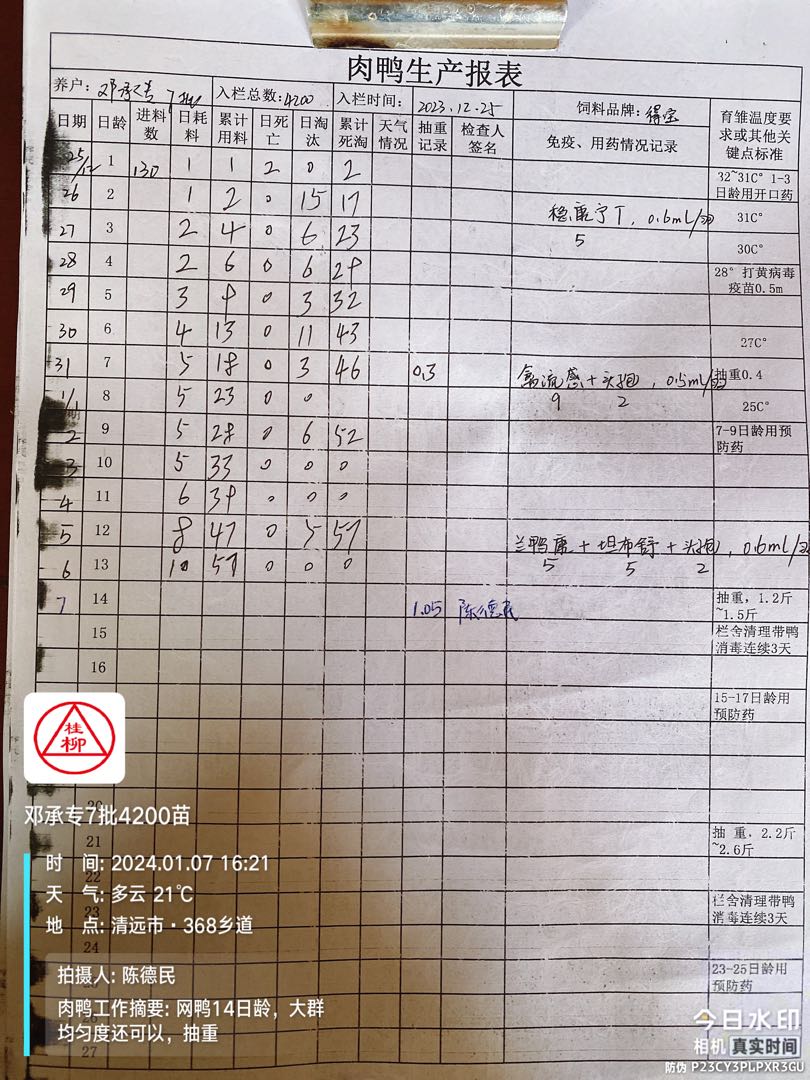 肉鸭生产报表
养户: 邓承专 7批 入栏总数: 4200 入栏时间: 2023.12.25 饲料品牌: 得宝
日期 日龄 进料数 日耗料 累计用料 日死亡 日淘汰 累计死淘 天气情况 抽重记录 检查人签名 免疫、用药情况记录 育雏温度要求或其他关键点标准
25/12 1 130 1 1 2 0 2 32~31C° 1-3日龄用开口药
26 2 1 2 0 15 17 31C°
稳 宁 T, 0.6mL/羽
5
27 3 2 4 0 6 23 30C°
28 4 2 6 0 6 29 28° 打黄病毒疫苗0.5m
29 5 3 9 0 3 32
30 6 4 13 0 11 43 27C°
31 7 5 18 0 3 46 0.3 禽流感+头孢, 0.5mL/羽 抽重0.4
9 2
1/1 8 5 23 0 0 25C°
2 9 5 28 0 6 52 7-9日龄用预防药
3 10 5 33 0 0 0
4 11 6 39 0 0 0
5 12 8 47 0 5 57 兰鸭 + 坦布舒 + 头孢, 0.6mL/羽
5 5 2
6 13 10 57 0 0 0
7 14 1.05 陈德民 抽重, 1.2斤~1.5斤
15 栏舍清理带鸭消毒连续3天
16
15-17日龄用预防药
20
21 抽 重, 2.2斤~2.6斤
22
23 栏舍清理带鸭消毒连续3天
24
23-25日龄用预防药
27
桂柳
邓承专7批4200苗
时 间: 2024.01.07 16:21
天 气: 多云 21℃
地 点: 清远市·368乡道
拍摄人: 陈德民
肉鸭工作摘要: 网鸭14日龄，大群均匀度还可以，抽重
今日水印
相机 真实时间
防伪 P23CY3PLPXR3GU